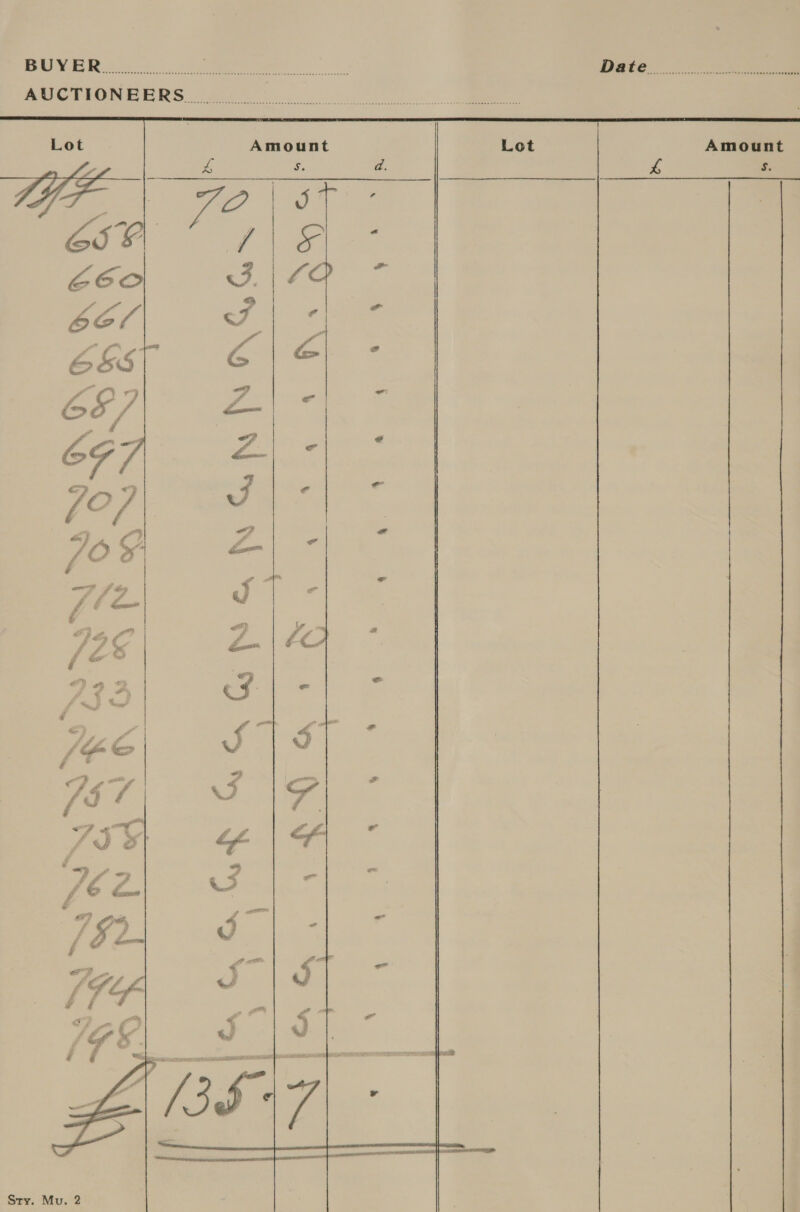 BUYER Date
AUCTIONEERS
Lot Amount Lot Amount
£ s. d. £ s.
B/F 70 5 -
658 1 8 -
660 3. 10 -
661 3 - -
685 6 6 -
687 2 - -
697 2 - -
707 3 - -
708 2 - -
712 5 - -
728 2 10 -
733 3 - -
746 5 5 -
757 3 9 -
758 4 4 -
762 3 - -
782 5 - -
794 5 5 -
798 5 5 -
£ 135 - 7 -
Sty. Mu. 2